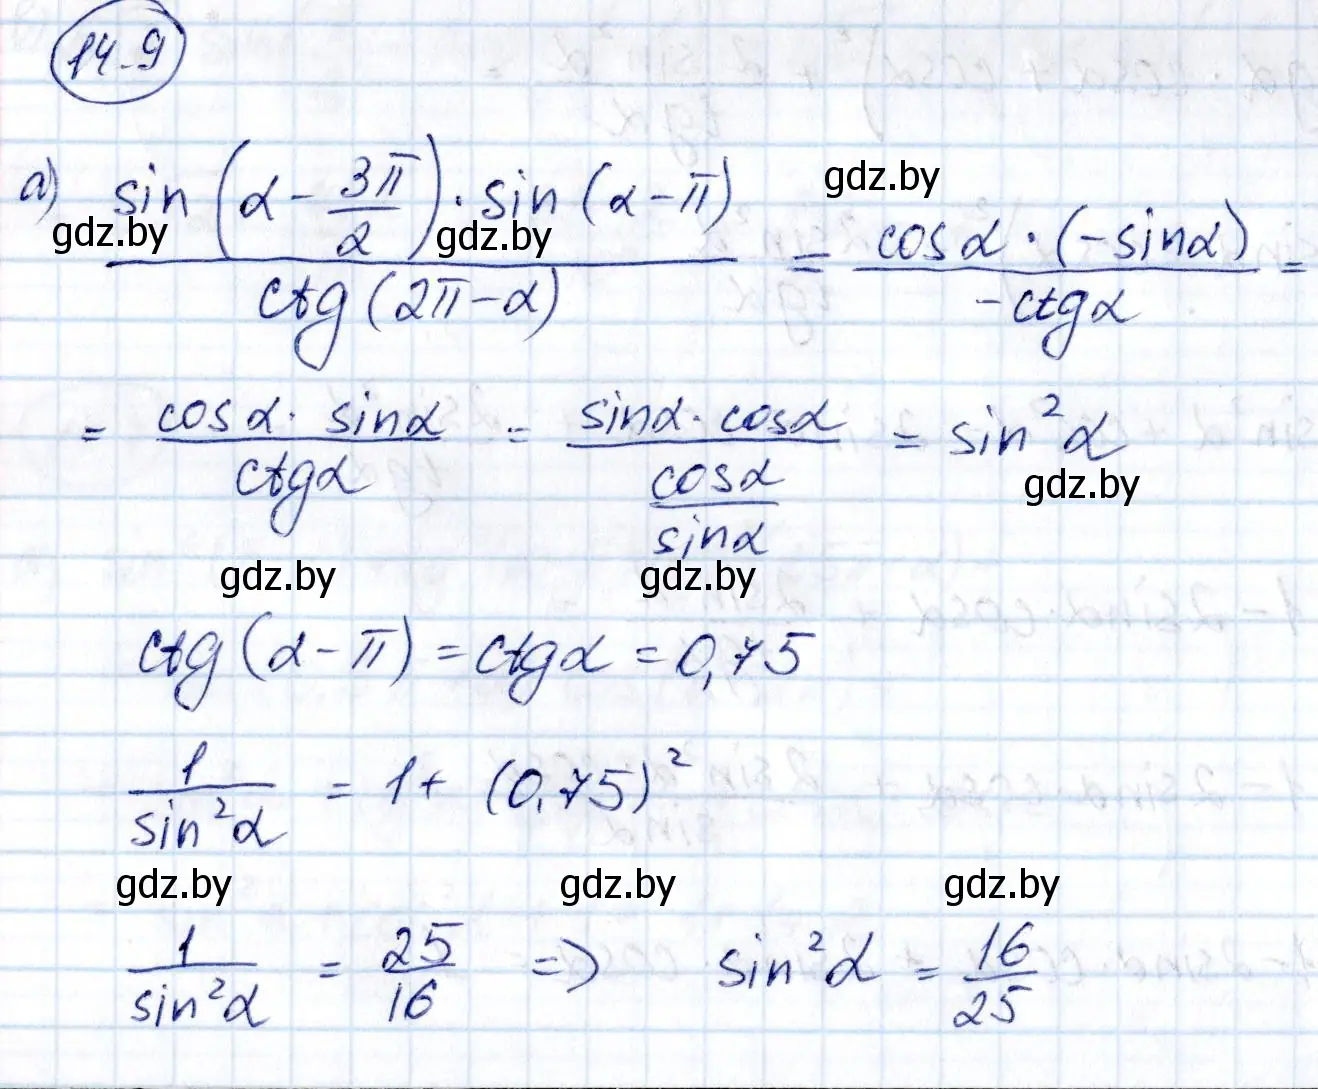 14.9
a) sin(α - 3π/2) · sin(α - π) / ctg(2π - α) = cosα · (-sinα) / -ctgα =
gdz.by
gdz.by
gdz.by
= cosα · sinα / ctgα = sinα · cosα / (cosα / sinα) = sin²α
gdz.by
gdz.by
gdz.by
ctg(α - π) = ctgα = 0,75
1 / sin²α = 1 + (0,75)²
gdz.by
gdz.by
gdz.by
1 / sin²α = 25/16 => sin²α = 16/25